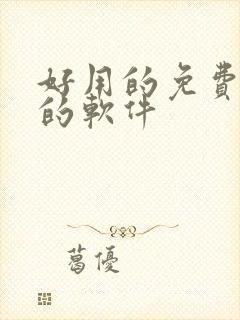 好用的免費
的軟件
葛優